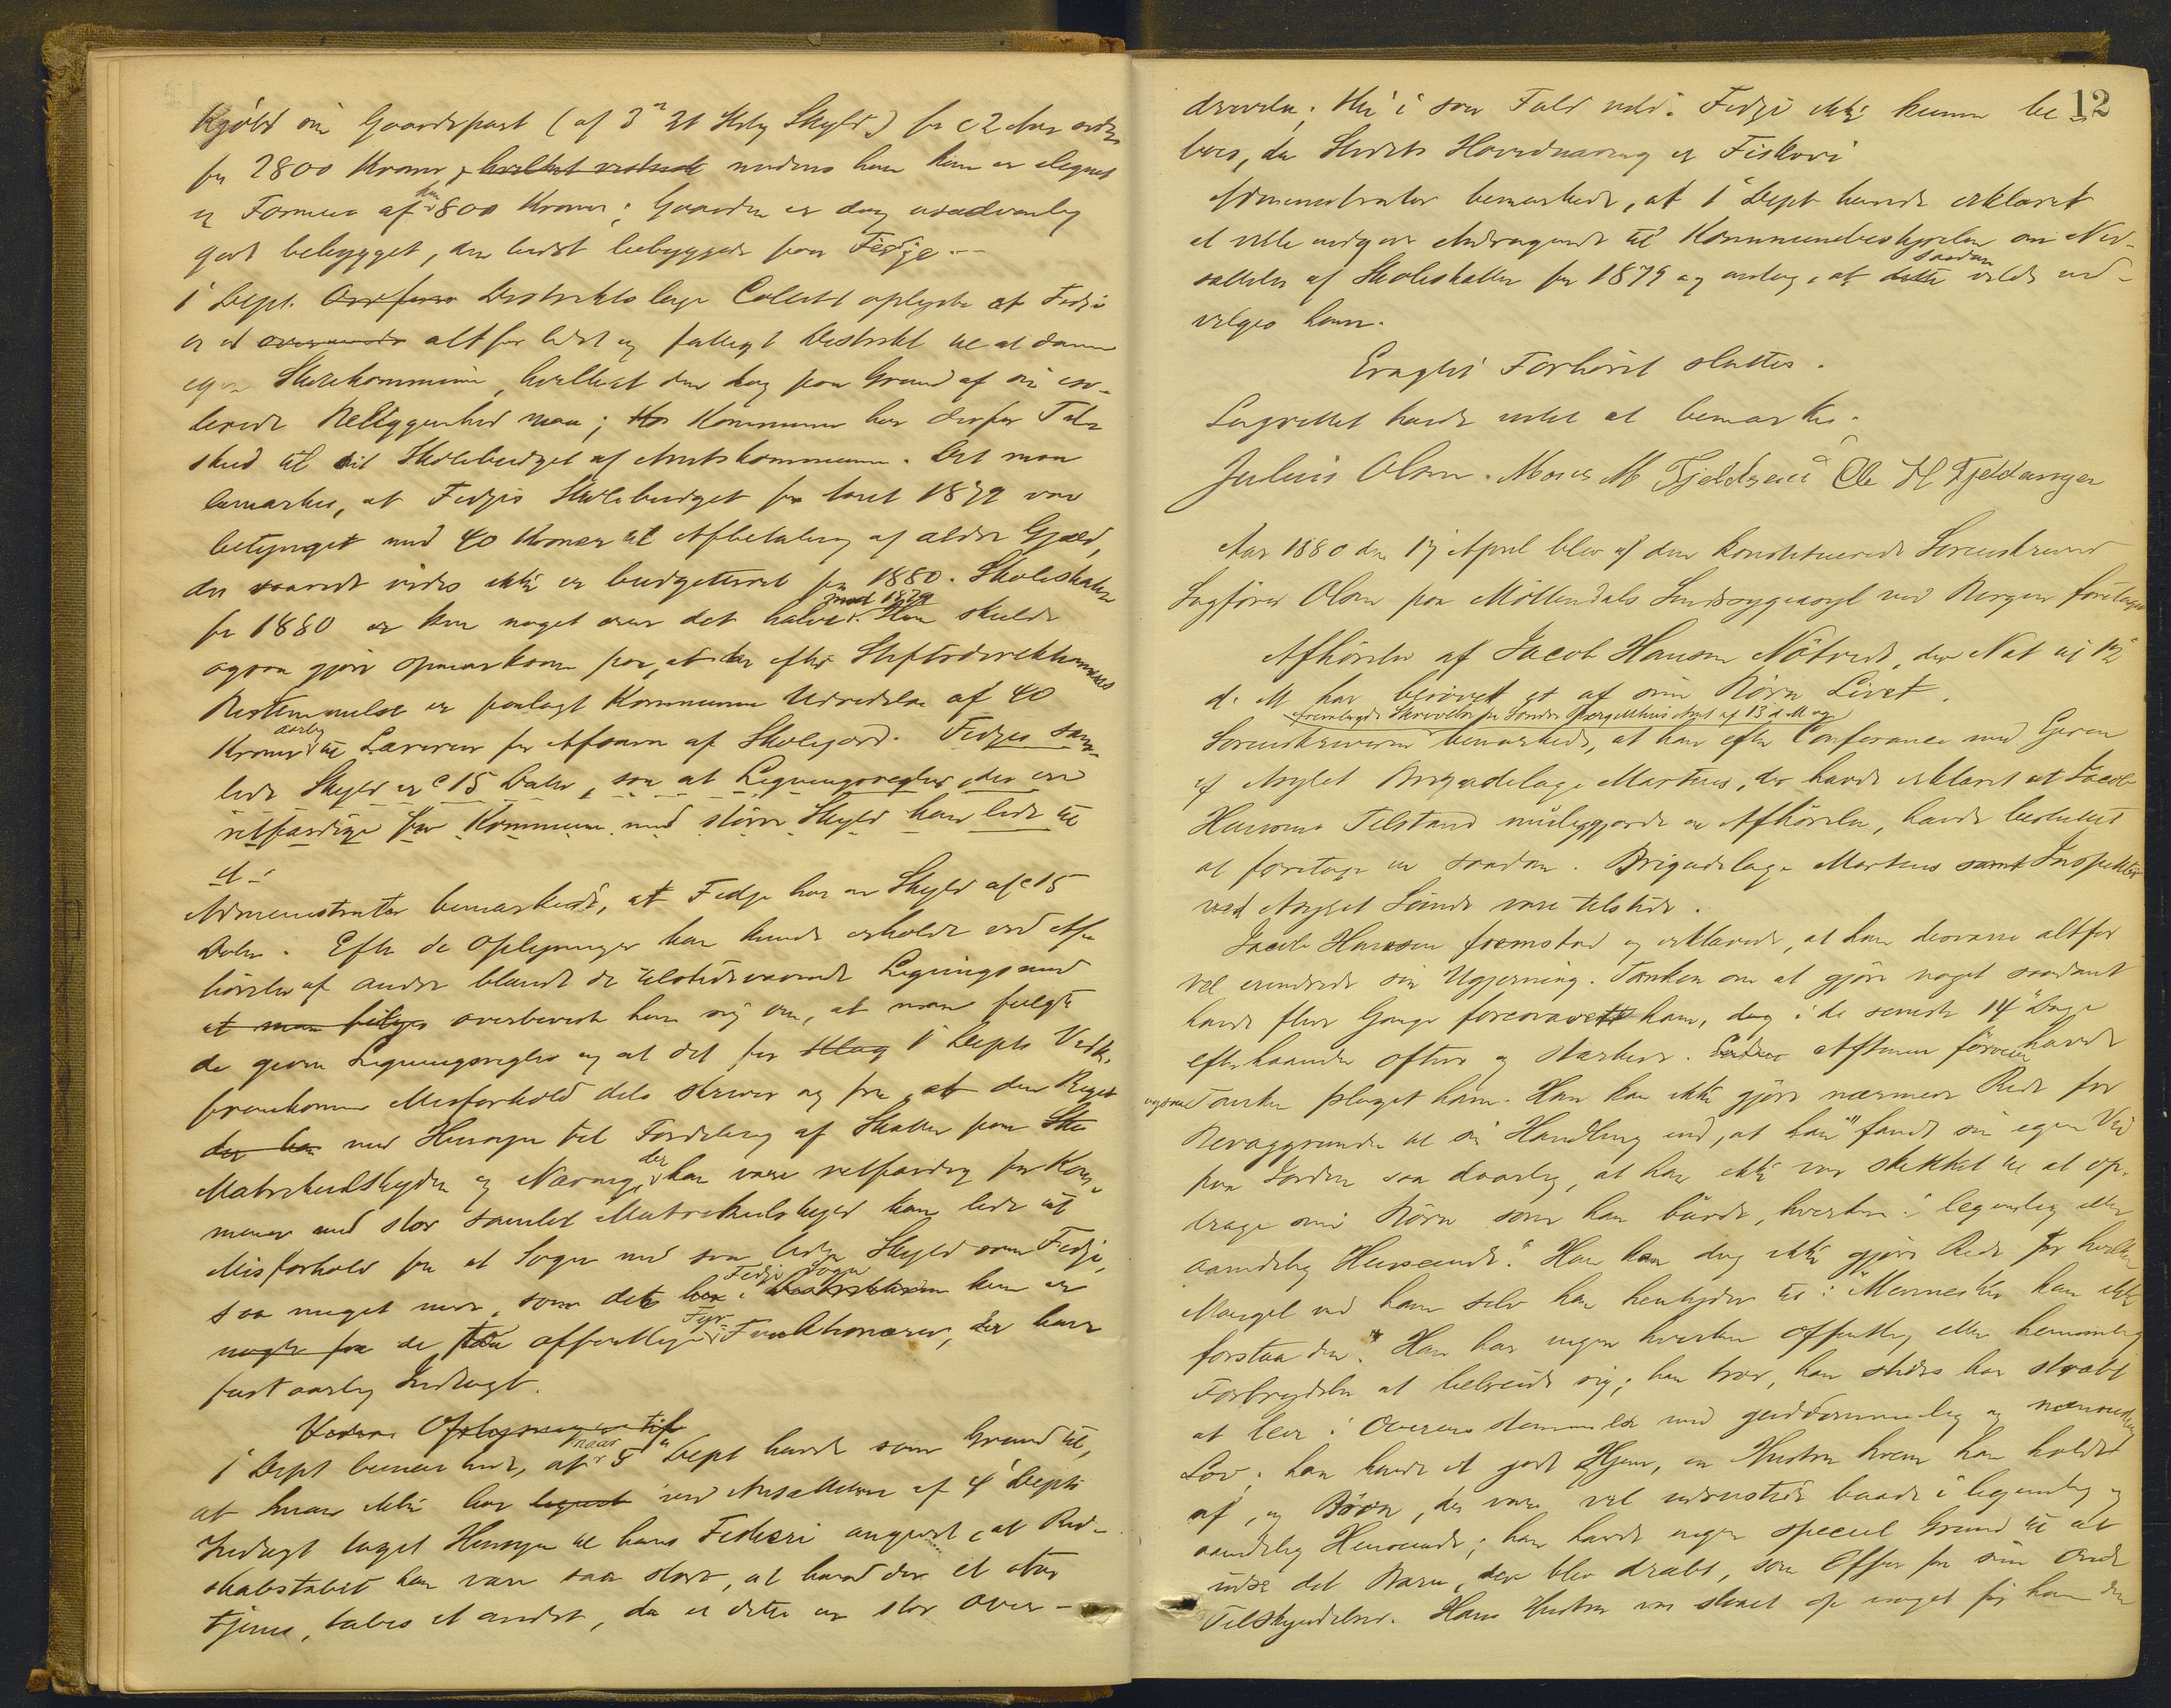 Kjöbt sin Gaardspart (af 3 21 Skylds) for c 2 Aar siden
for 2800 Kroner, hvilket medens han kun er lignet
en Formue af kun 800 Kroner; Gaarden er dog usædvanlig
godt bebygget, den bedst bebyggede paa Fedje
1 Dept. Distriktslæge Collett oplyste at Fedje
er et altfor lidet og fattigt Distrikt til at danne
egen Skolekommune, hvilket den dog paa Grund af sin iso-
lerede Beliggenhed maa; Kommunen har derfor Til-
skud til sit Skolebudget af Amtskommunen. Det maa
bemærkes, at Fedjes Skolebudget for Aaret 1879 var
betynget med 40 Kroner til Afbetaling af ældre Gjæld,
der saavidt vides ikke er budgetteret for 1880. Skoleskatten
for 1880 er kun noget over det halve mod 1879. Han skulde
ogsaa gjøre opmærksom paa, at der efter Stiftsdirektionens
Bestemmelse er paalagt Kommunen Udredelse af 40
Kroner aarlig til Læreren for Afsavn af Skolejord. Fedjes sam-
lede Skyld er c 15 Daler, saa at Ligningsregler, der ere
retfærdige for Kommuner med større Skyld kan lede til
Administrator bemærkede, at Fedje har en Skyld af c 15
Daler. Efter de Oplysninger han havde erholdt ved Af-
hörelse af andre blandt de tilstedeværende Ligningsmænd
at man følges overbeviste han sig om, at man fulgte
de givne Ligningsregler og at det for 1 Depts Vedk.
fremkomne Misforhold dels skriver sig fra, at den Regel
der kan med Hensyn til Fordeling af Skatter paa
Matrikulskylden og Næring, der kan være retfærdig for Kom-
muner med stor samlet Matrikulskyld kan lede til
Misforhold for et Sogn med saa liden Skyld som Fedje,
saa meget mere, som det i Fedje Sogn kun er
nogle faa de offentlige Fyr-Funktionærer, der have
fast aarlig Indtægt.
Videre Oplysninger
1 Dept bemærkede, at naar 5 Dept havde som Grund til,
at man ikke har ved Ansættelsen af 4 Depts
Indtægt taget Hensyn til hans Fiskeri angivet, at Red-
skabstabet kan være saa stort, at hvad der et Aar
tjenes, tabes et andet, da er dette en stor Over-
12
drivelse; thi i saa Fald vilde Fedje ikke kunne be-
boes, da Stedets Hovednæring er Fiskeri
Administrator bemærkede, at 1 Dept havde erklæret
at ville indgive Andragende til Kommunebestyrelsen om Ned-
sættelse af Skoleskatten for 1879 og antog, at saadan vilde ind-
vilges ham.
Eragtet Forhöret sluttes.
Lagrettet havde intet at bemærke.
Julius Olsen. Moses M Fjeldanger Ole H Fjeldanger
Aar 1880 den 17 April blev af den konstituerede Sorenskriver
Sagförer Olsen paa Möllendals Sindssygeasyl ved Bergen foretaget
Afhörelse af Jacob Hansen Nötvedt, der Nat til 12
d. M. har berövet et af sine Börn Livet.
fremlagde Skrivelse fra Söndre Bergenhus Amt af 13 d. M. og
Sorenskriveren bemærkede, at han efter Conferance med Lægen
af Asylet Brigadelæge Martens, der havde erklæret at Jacob
Hansens Tilstand muliggjorde en Afhörelse, havde besluttet
at foretage en saadan. Brigadelæge Martens samt Inspektör
ved Asylet Lunde vare tilstede.
Jacob Hansen fremstod og erklærede, at han desværre altfor
vel erindrede sin Ugjerning. Tanken om at gjöre noget saadant
havde flere Gange foresvævet ham, dog i de seneste 14 Dage
efterhaanden oftere og stærkere. Aftenen förvein havde
ogsaa Tanken plaget ham. Han kan ikke gjöre nærmere Rede for
Bevæggrunden til sin Handling end, at han "fandt sin egen Vei
paa Jorden saa daarlig, at han ikke var skikket til at op-
drage sine Börn som han burde, hverken i legemlig eller
aandelig Henseende". Han kan dog ikke gjöre Rede for hvilken
Mangel ved ham selv han henhyder til: "Mennesker kan ikke
forstaa den." Han har ingen hverken offentlig eller hemmelig
Forbrydelse at bebreide sig; han tror, han stedse har stræbt
at leve i Overensstemmelse med guddommelig og menneskelig
Lov; han havde et godt Hjem, en Hustru hvem han holdt
af, og Börn, der vare vel udrustede baade i legemlig og
aandelig Henseende; han havde ingen speciel Grund til at
udse det Barn, der blev dræbt, som Offer for sin onde
Tilskyndelse. Hans Hustru var staaet op noget för ham den